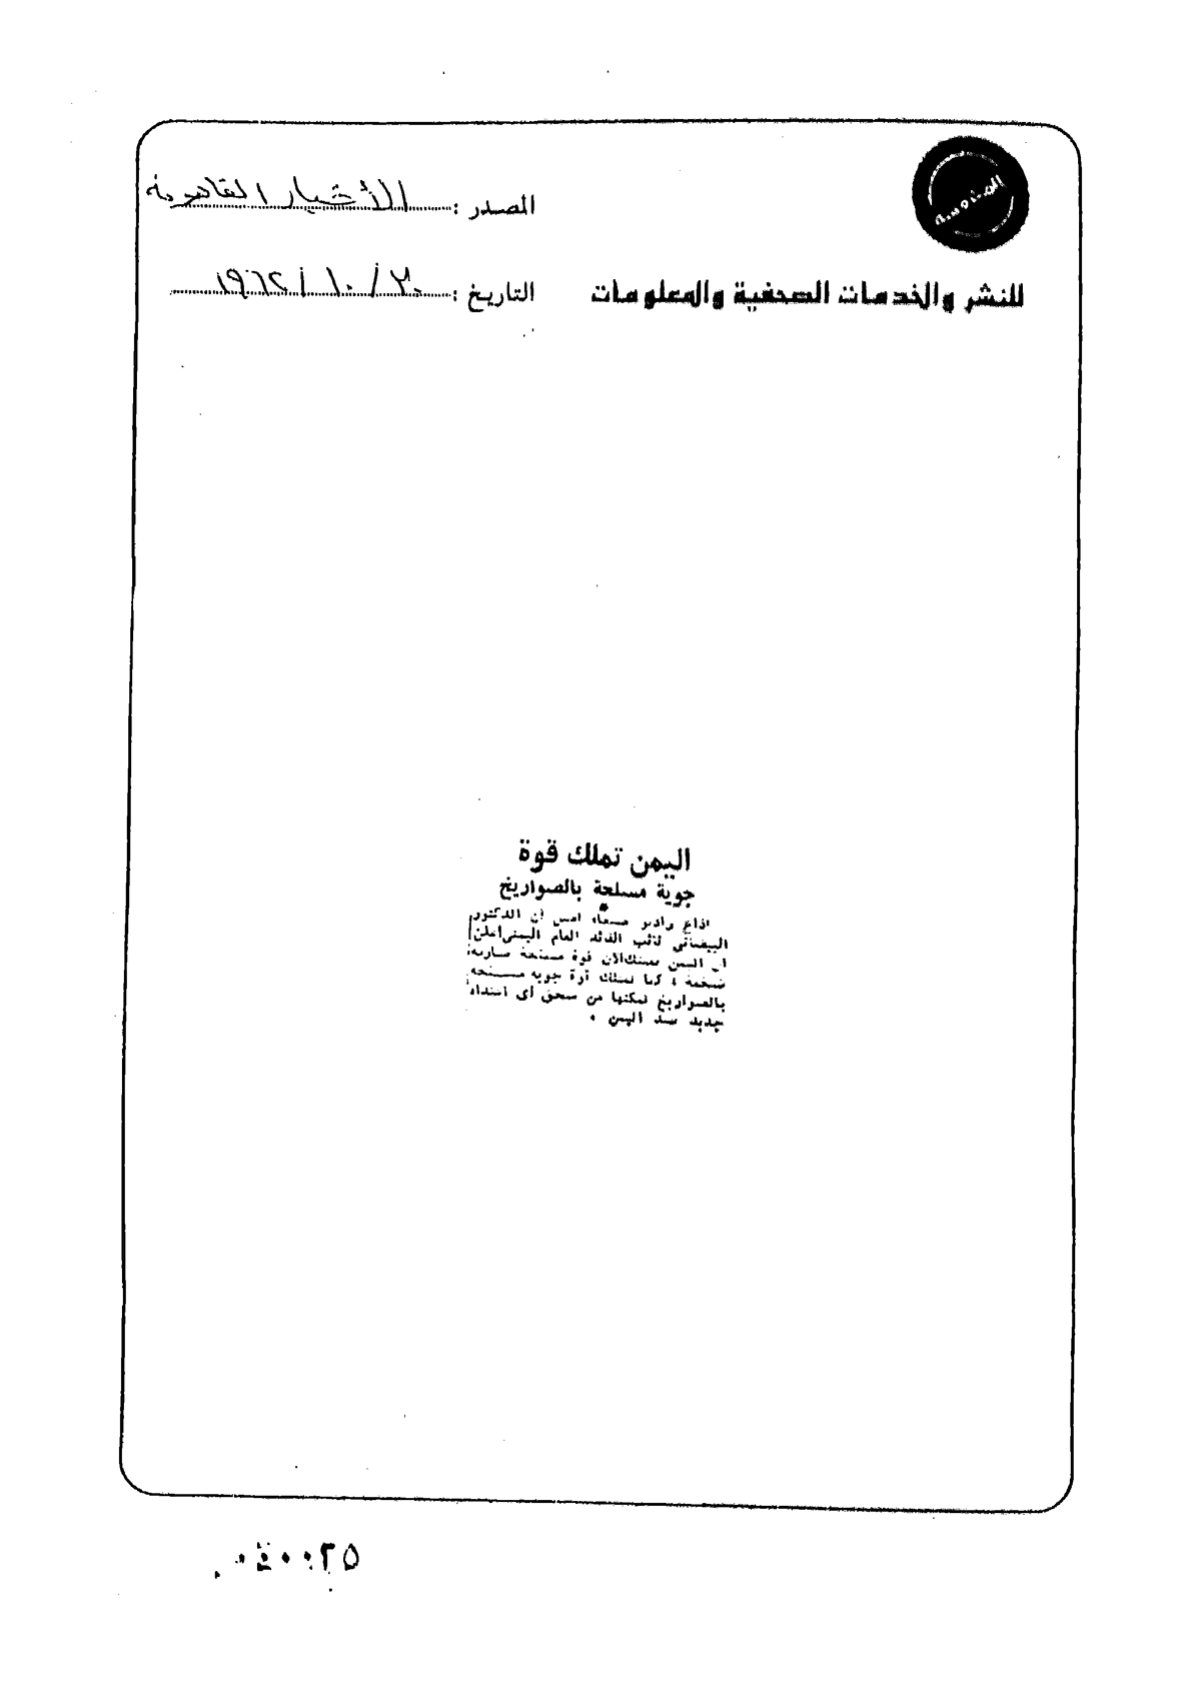 المحروسة
المصدر : الأخبار القاهرية
للنشر والخدمات الصحفية والمعلومات
التاريخ : ٣٠ / ١٠ / ١٩٦٢
اليمن تملك قوة
جوية مسلحة بالصواريخ
اذاع راديو صنعاء امس أن الدكتور
البيضاني نائب القائد العام اليمني اعلن
ان اليمن تمتلك الآن قوة مسلحة ضاربة
ضخمة ، كما تمتلك قوة جوية مسلحة
بالصواريخ تمكنها من سحق أى اعتداء
جديد ضد اليمن .